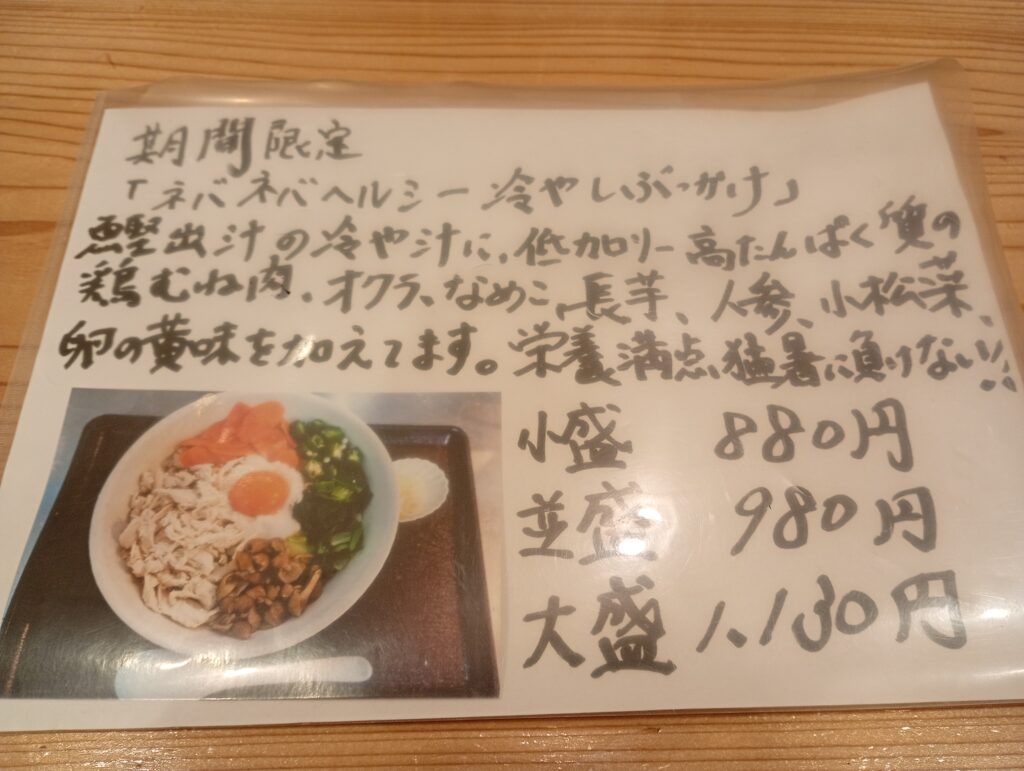 期間限定
「ネバネバヘルシー冷やしぶっかけ」
鰹出汁の冷や汁に、低カロリー高たんぱく質の
鶏むね肉、オクラ、なめこ、長芋、人参、小松菜、
卵の黄味を加えてます。栄養満点猛暑に負けない!!
小盛 880円
並盛 980円
大盛 1,130円